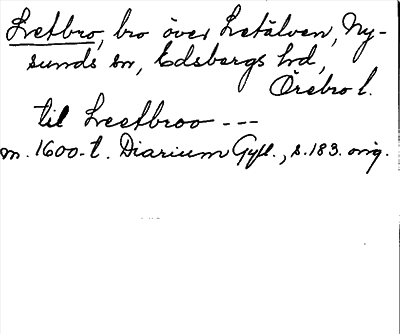 Svetbro, bro över Letälven, Ny-
sunds sn, Edsbergs hd,
Örebro l.
til Sveetbroo ---
m. 1600-t. Diarium Gyll., s. 183. orig.